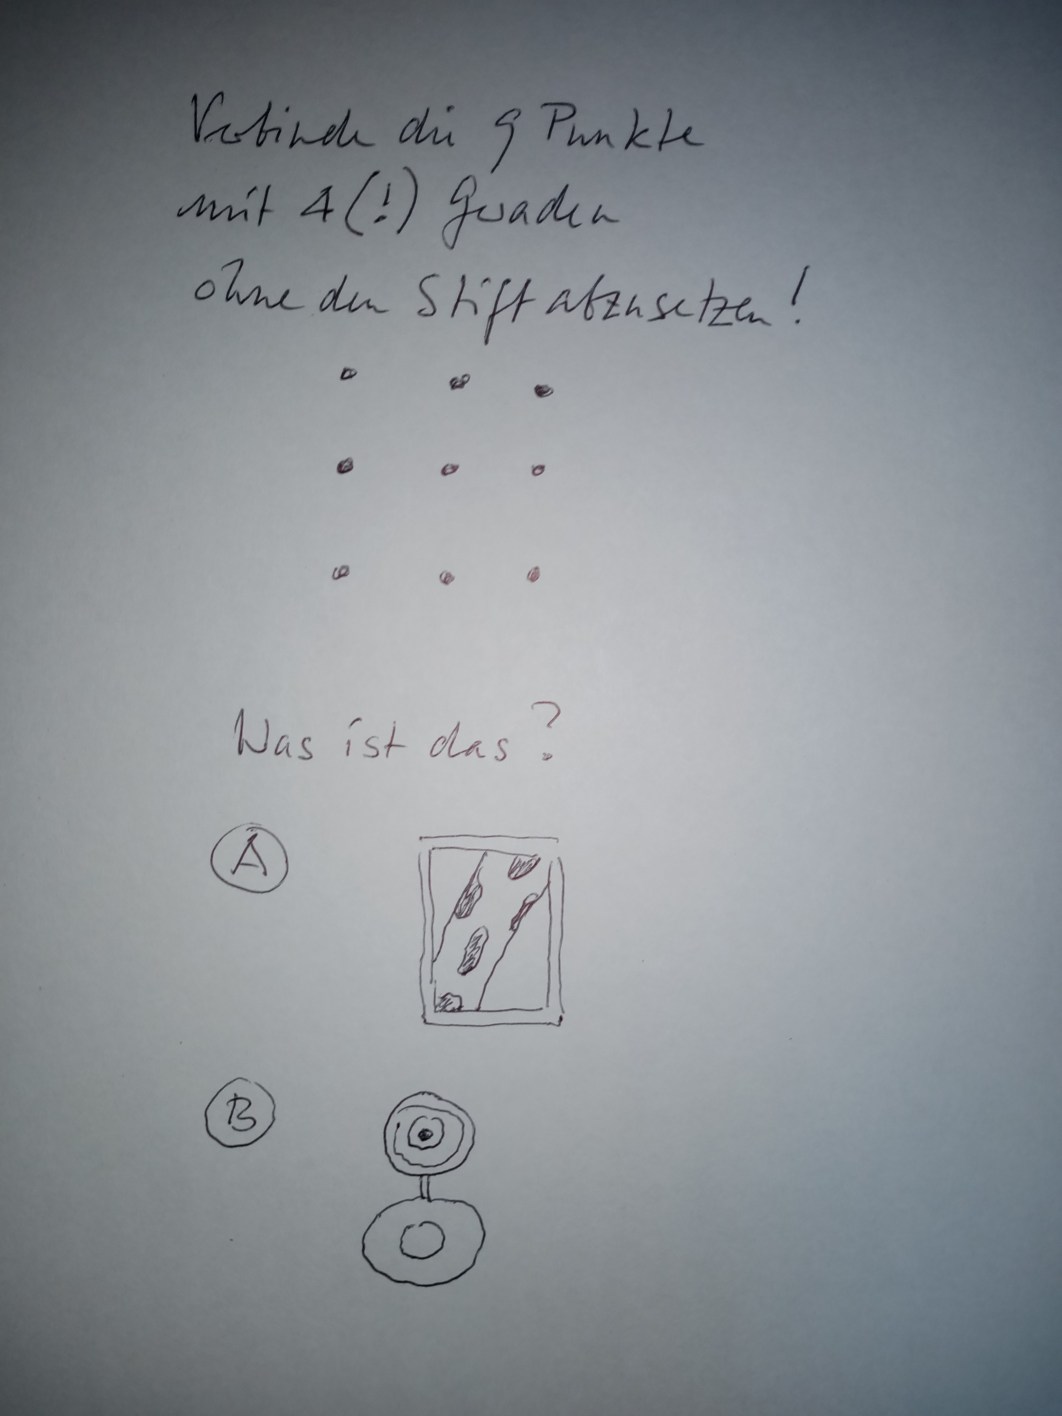 Verbinde die 9 Punkte
mit 4 (!) Geraden
ohne den Stift abzusetzen!
Was ist das?
A
B